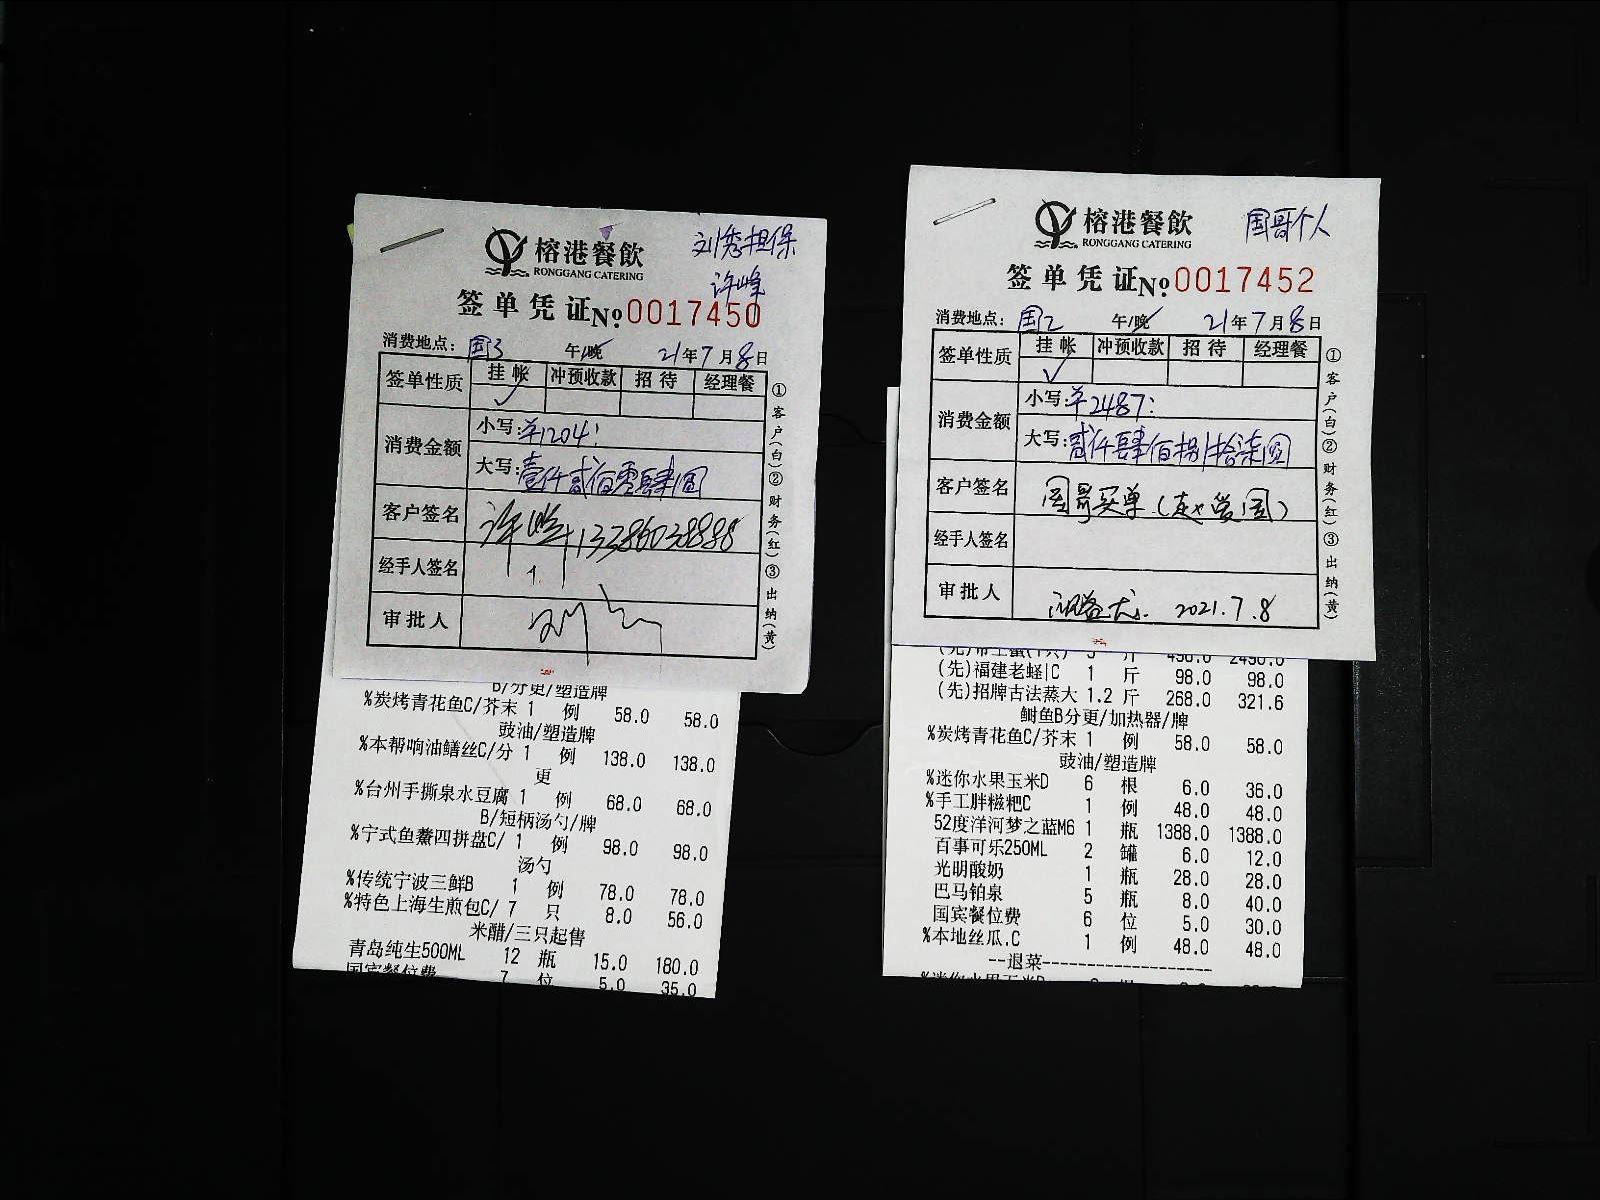 榕港餐飲
RONGGANG CATERING
刘秀担保
许峰
签单凭证 No. 0017450
消费地点: 国3 午/晚 21年7月8日
签单性质 挂帐 冲预收款 招待 经理餐
✓
消费金额 小写: ¥1204:
大写: 壹仟贰佰零肆圆
客户签名 许峰 13386038888
经手人签名
审批人
①客户(白)②财务(红)③出纳(黄)
B/分更/塑造牌
%炭烤青花鱼C/芥末 1 例 58.0 58.0
豉油/塑造牌
%本帮响油鳝丝C/分 1 例 138.0 138.0
更
%台州手撕泉水豆腐 1 例 68.0 68.0
B/短柄汤勺/牌
%宁式鱼鲞四拼盘C/ 1 例 98.0 98.0
汤勺
%传统宁波三鲜B 1 例 78.0 78.0
%特色上海生煎包C/ 7 只 8.0 56.0
米醋/三只起售
青岛纯生500ML 12 瓶 15.0 180.0
国宾餐位费 7 位 5.0 35.0
榕港餐飲
RONGGANG CATERING
国哥个人
签单凭证 No. 0017452
消费地点: 国2 午/晚 21年7月8日
签单性质 挂帐 冲预收款 招待 经理餐
✓
消费金额 小写: ¥2487:
大写: 贰仟肆佰捌拾柒圆
客户签名 国哥买单(赵爱国)
经手人签名
审批人 2021.7.8
①客户(白)②财务(红)③出纳(黄)
498.0 2490.0
(先)福建老蛏|C 1 斤 98.0 98.0
(先)招牌古法蒸大 1.2 斤 268.0 321.6
鲥鱼B分更/加热器/牌
%炭烤青花鱼C/芥末 1 例 58.0 58.0
豉油/塑造牌
%迷你水果玉米D 6 根 6.0 36.0
%手工胖糍粑C 1 例 48.0 48.0
52度洋河梦之蓝M6 1 瓶 1388.0 1388.0
百事可乐250ML 2 罐 6.0 12.0
光明酸奶 1 瓶 28.0 28.0
巴马铂泉 5 瓶 8.0 40.0
国宾餐位费 6 位 5.0 30.0
%本地丝瓜.C 1 例 48.0 48.0
--退菜--------------------
%迷你水果玉米D